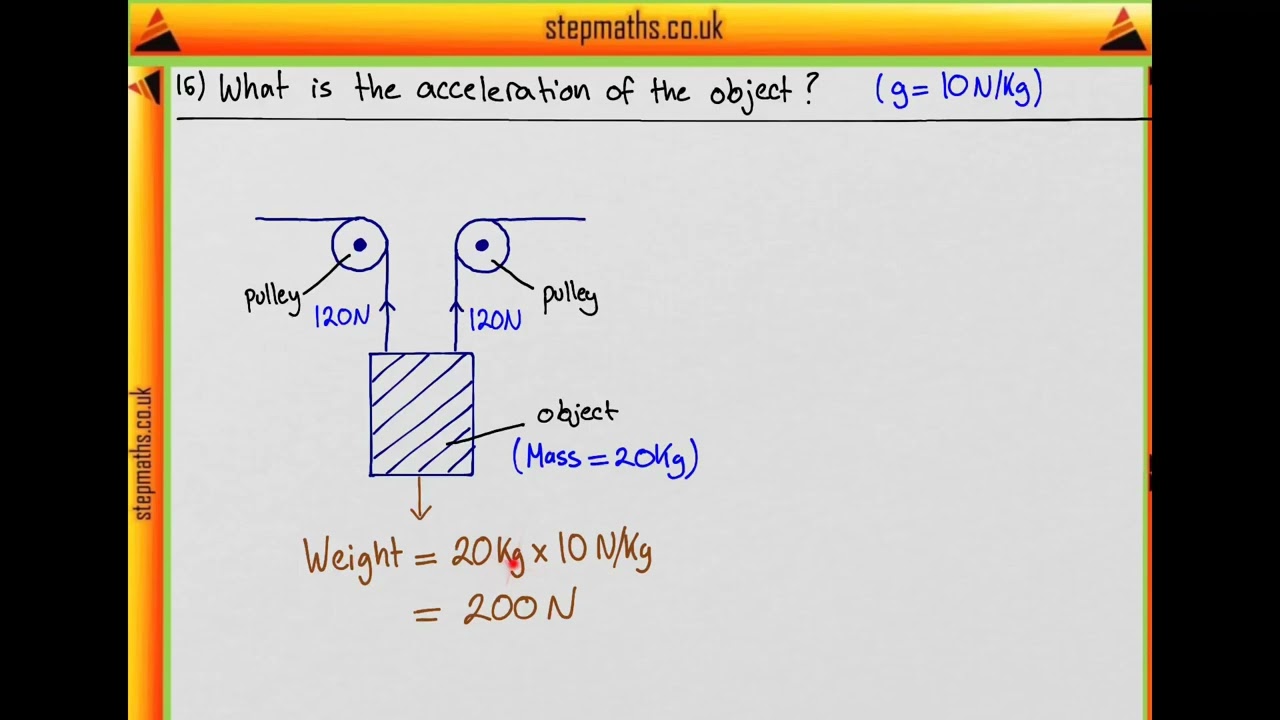 stepmaths.co.uk
16) What is the acceleration of the object? (g= 10N/Kg)
pulley
pulley
120N
120N
object
(Mass = 20Kg)
Weight = 20Kg x 10 N/Kg
= 200 N
stepmaths.co.uk